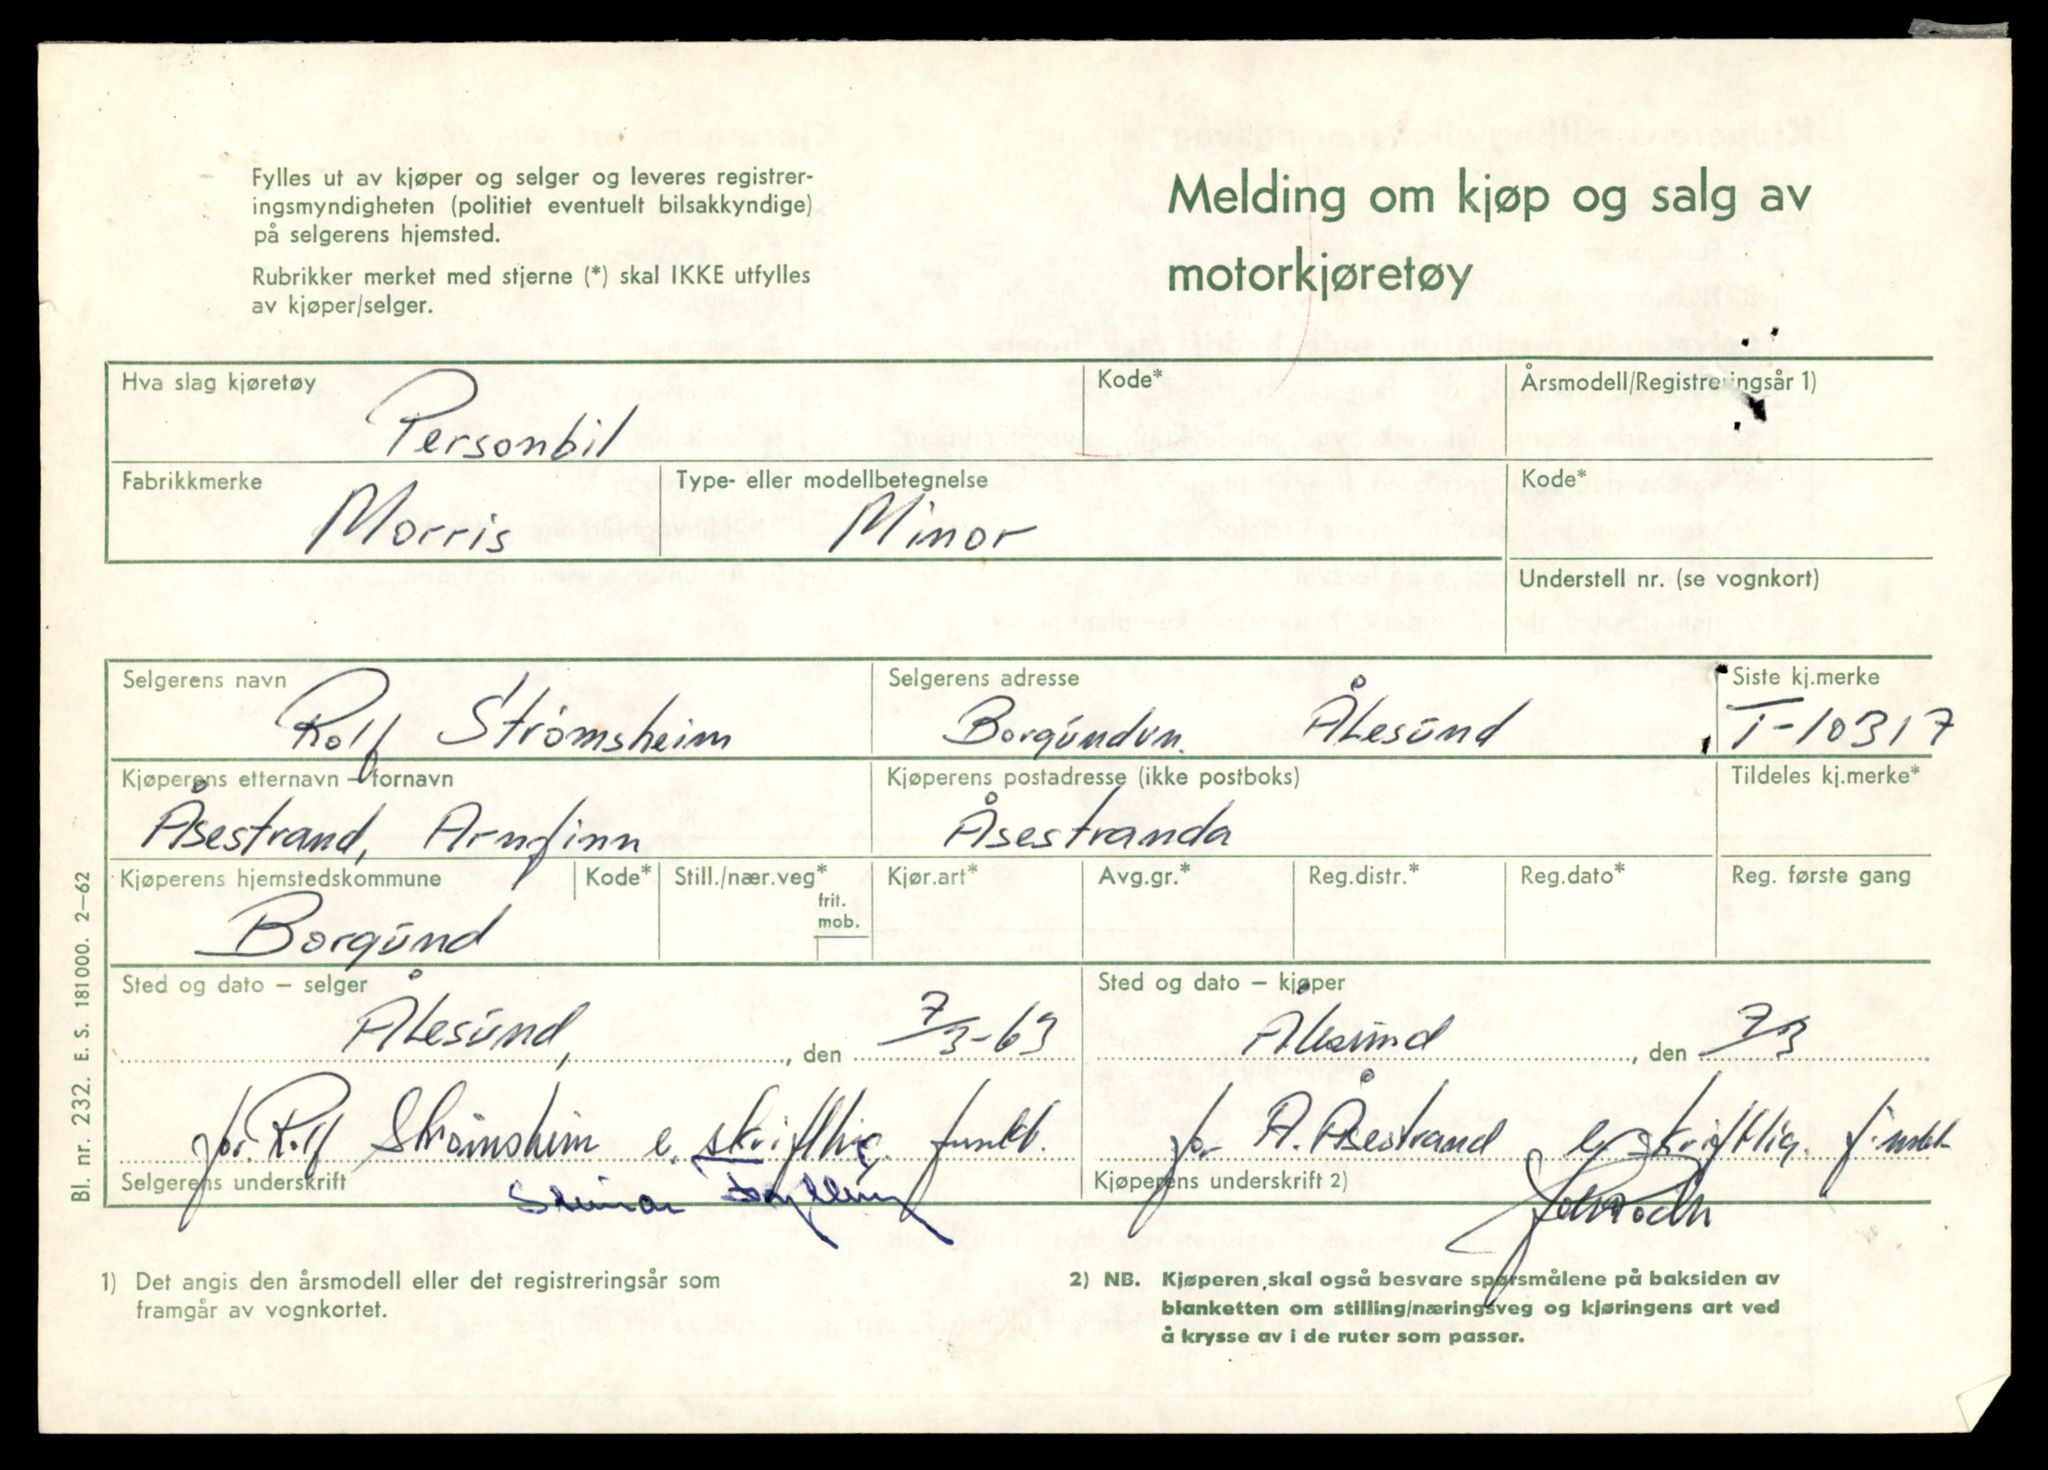 Fylles ut av kjøper og selger og leveres registrer-
ingsmyndigheten (politiet eventuelt bilsakkyndige)
på selgerens hjemsted.
Rubrikker merket med stjerne (*) skal IKKE utfylles
av kjøper/selger.
Melding om kjøp og salg av
motorkjøretøy
Hva slag kjøretøy
Kode*
Årsmodell/Registreringsår 1)
Personbil
Fabrikkmerke
Type- eller modellbetegnelse
Kode*
Morris
Minor
Understell nr. (se vognkort)
Selgerens navn
Selgerens adresse
Siste kj.merke
Rolf Strømsheim
Borgundvn. Ålesund
T-10317
Kjøperens etternavn – fornavn
Kjøperens postadresse (ikke postboks)
Tildeles kj.merke*
Åsestrand, Arnfinn
Åsestranda
Kjøperens hjemstedskommune
Kode*
Still./nær.veg*
frit.
mob.
Kjør.art*
Avg.gr.*
Reg.distr.*
Reg.dato*
Reg. første gang
Borgund
Sted og dato – selger
Sted og dato – kjøper
Ålesund, , den 7/3-63
Ålesund , den 7/3
for Rolf Strømsheim e. skriftlig funkt.
for A. Åsestrand e skriftlig. funkt
Selgerens underskrift
Kjøperens underskrift 2)
1) Det angis den årsmodell eller det registreringsår som
framgår av vognkortet.
2) NB. Kjøperen skal også besvare spørsmålene på baksiden av
blanketten om stilling/næringsveg og kjøringens art ved
å krysse av i de ruter som passer.
Bl. nr. 232. E. S. 181000. 2–62